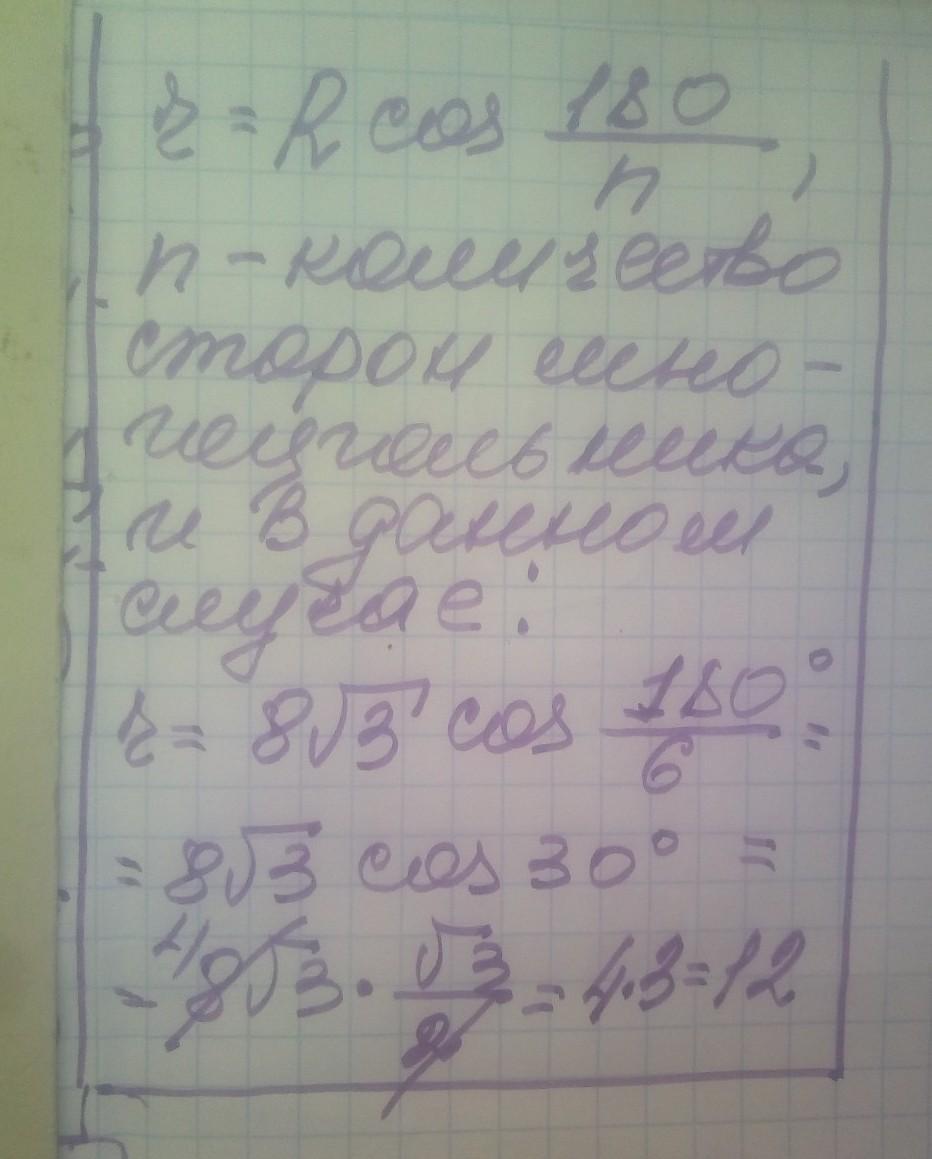 r = R cos 180/n,
n - количество
сторон мно-
гоугольника,
и в данном
случае:
r = 8√3 cos 180°/6 =
= 8√3 cos 30° =
= 4 8√3 · √3/2 = 4·3=12